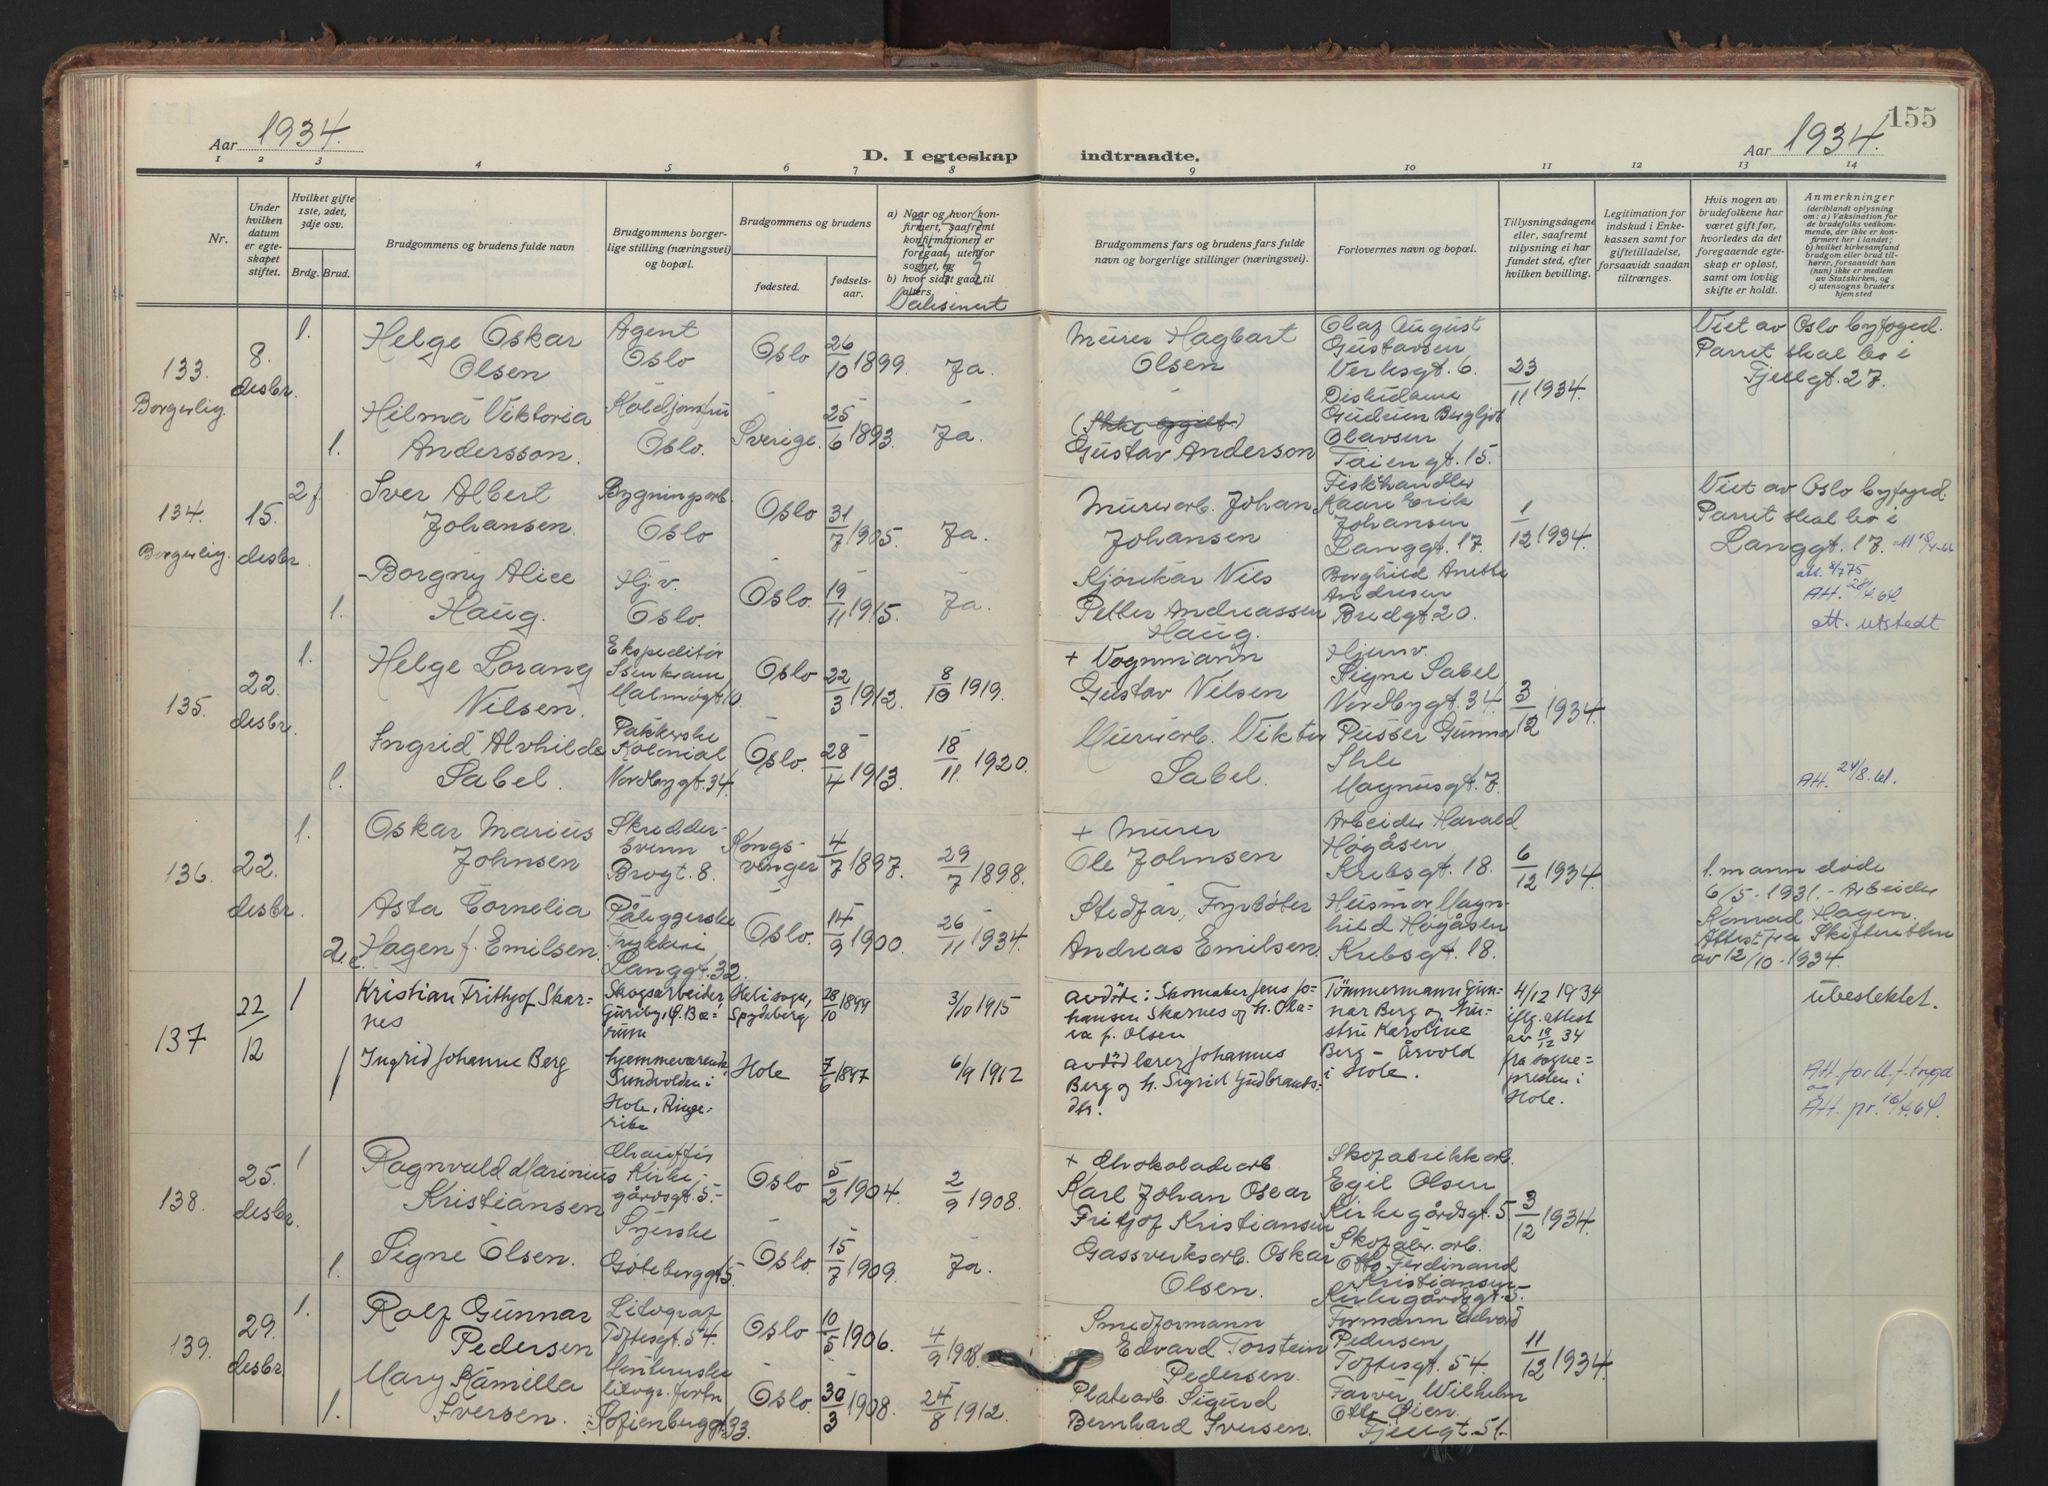 155
Aar 1934.
D. I egteskap indtraadte.
Aar 1934.
1 2 3 4 5 6 7 8 9 10 11 12 13 14
Nr.
Under hvilken datum er egteskapet stiftet.
Hvilket gifte 1ste, 2det, 3dje osv.
Brdg. Brud.
Brudgommens og brudens fulde navn
Brudgommens borgerlige stilling (næringsvei) og bopæl.
Brudgommens og brudens
fødested.
fødselsaar.
a) Naar og hvor konfirmert, saafremt konfirmationen er foregaat utenfor sognet, og
b) hvor sidst gaat til alters.
Vaksinert
Brudgommens fars og brudens fars fulde navn og borgerlige stillinger (næringsvei).
Forlovernes navn og bopæl.
Tillysningsdagene eller, saafremt tillysning ei har fundet sted, efter hvilken bevilling.
Legitimation for indskud i Enkekassen samt for giftetilladelse, forsaavidt saadan tiltrænges.
Hvis nogen av brudefolkene har været gift før, hvorledes da det foregaaende egteskap er opløst, samt om lovlig skifte er holdt.
Anmerkninger
(deriblandt oplysning om: a) Vaksination for de brudefolks vedkommende, der ikke er konfirmert her i landet; b) hvilket kirkesamfund brudgom eller brud tilhører, forsaavidt han (hun) ikke er medlem av Statskirken, og c) utensogns bruders hjemsted
133. Borgerlig.
8. desbr.
1.
Helge Oskar Olsen
Agent Oslo
Oslo
26/10 1899.
Ja.
Murer Hagbart Olsen
Olaf August Gustavsen
Verksgt. 6.
23/11 1934.
Viet av Oslo byfoged.
Parret skal bo i
Fjellgt. 27.
1.
Hilma Viktoria Andersson.
Koldjomfru Oslo.
Sverige.
25/6 1893.
Ja.
(Ikke opgitt)
Gustav Anderson
Gudrun Bergljot Olavsen
Tøiengt. 15.
134. Borgerlig.
15. desbr.
2 f
Iver Albert Johansen.
Bygningsarb. Oslo
Oslo
31/7 1905.
Ja.
Murerarb. Johan Johansen
Fiskehandler Kaare Erik Johansen
Langgt. 17.
1/12 1934.
Viet av Oslo byfogd.
Parret skal bo i
Langgt. 17.
att. 8/7 75
Att. 28/4.64.
att. utstedt
1.
Borgny Alice Haug.
Hj. v. Oslo.
Oslo.
19/11 1915.
Ja.
Kjørekar Nils Petter Andreassen Haug.
Borghild Anette Andresen
Bredgt. 20.
135.
22. desbr.
1.
Helge Lorang Nilsen.
Ekspeditør Isenkram
Malmøgt. 10
Oslo
22/3 1912.
8/10 1919.
+ Vognmann Gustav Nilsen
Hjemv. Signe Sabel
Nordbygt. 34.
3/12 1934.
1.
Ingrid Alvhilde Sabel.
Pakkerske Kolonial
Nordbygt. 34.
Oslo.
28/4 1913.
18/11 1920.
Murerarb. Viktor Sabel.
Pusser Gunnar Ihle
Magnusgt. 7.
Att. 24/8.61.
136.
22. desbr.
1.
Oskar Marius Johnsen
Skreddersvenn
Brogt. 8.
Kongsvinger
4/7 1897.
29/7 1898.
+ Murer Ole Johnsen
Arbeider Harald Høgåsen
Krebsgt. 18.
6/12 1934.
1. mann døde
6/5-1931. - Arbeider
Konrad Hagen.
Attest fra Skifteretten
av 12/10-1934.
2. e.
Asta Cornelia Hagen f. Emilsen.
Påleggerske Trykkeri
Langgt. 32.
Oslo.
14/9 1900.
26/11 1934.
Stedfar, Fyrbøter Andreas Emilsen.
Husmor Magnhild Høgåsen
Krebsgt. 18.
137
22/12
1
Kristian Frithjof Skarnes
Skogsarbeider, Guriby, L. Bærum
Heli sogn, Spydeberg
28/10 1899
3/10 1915
avdøde: Skomaker Jens Johansen Skarnes og h. Olava f. Olsen
Tømmermann Gunnar Berg og hustru Karoline Berg - Årvold i Hole.
4/12 1934
iflg. attest
av 19/12 34
fra sogne=
presten i
Hole.
ubeslektet.
1
Ingrid Johanne Berg
hjemmeværende, Sundvolden i Hole, Ringerike
Hole
7/6 1897
6/9 1912
avdød lærer Johannes Berg og h. Sigrid Gudbrandsdtr.
Att. for
og
Att. pr. 16/4.64.
138.
25. desbr.
1
Ragnvald Marinius Kristiansen
Chauffør
Kirkegårdsgt. 5.-
Oslo
5/2 1904.
2/9 1908.
+ Chokoladearb Karl Johan Oscar Fritjof Kristiansen
Skofabrikkarb. Egil Olsen
Kirkegårdsgt. 5
3/12 1934.
1.
Signe Olsen.
Syerske
Göteborggt. 5.
Oslo.
15/7 1909.
Ja.
Gassverksarb. Oskar Olsen.
Skofabr. arb. Otto Ferdinand Kristiansen
Kirkegårdsgt. 5.
139.
29. desbr.
1.
Rolf Gunnar Pedersen
Litograf
Toftesgt. 54.
Oslo
10/5 1906.
4/9 1908.
Smedformann Edvard Torstein Pedersen.
Formann Edvard Pedersen
Toftesgt. 54.
11/12 1934.
1.
Mary Kamilla Iversen.
Sofienberggt. 93.
Oslo.
30/3 1908.
24/8 1912.
Platearb. Sigurd Bernhard Iversen.
Farver Wilhelm Otto Øien.
Fjellgt. 51.